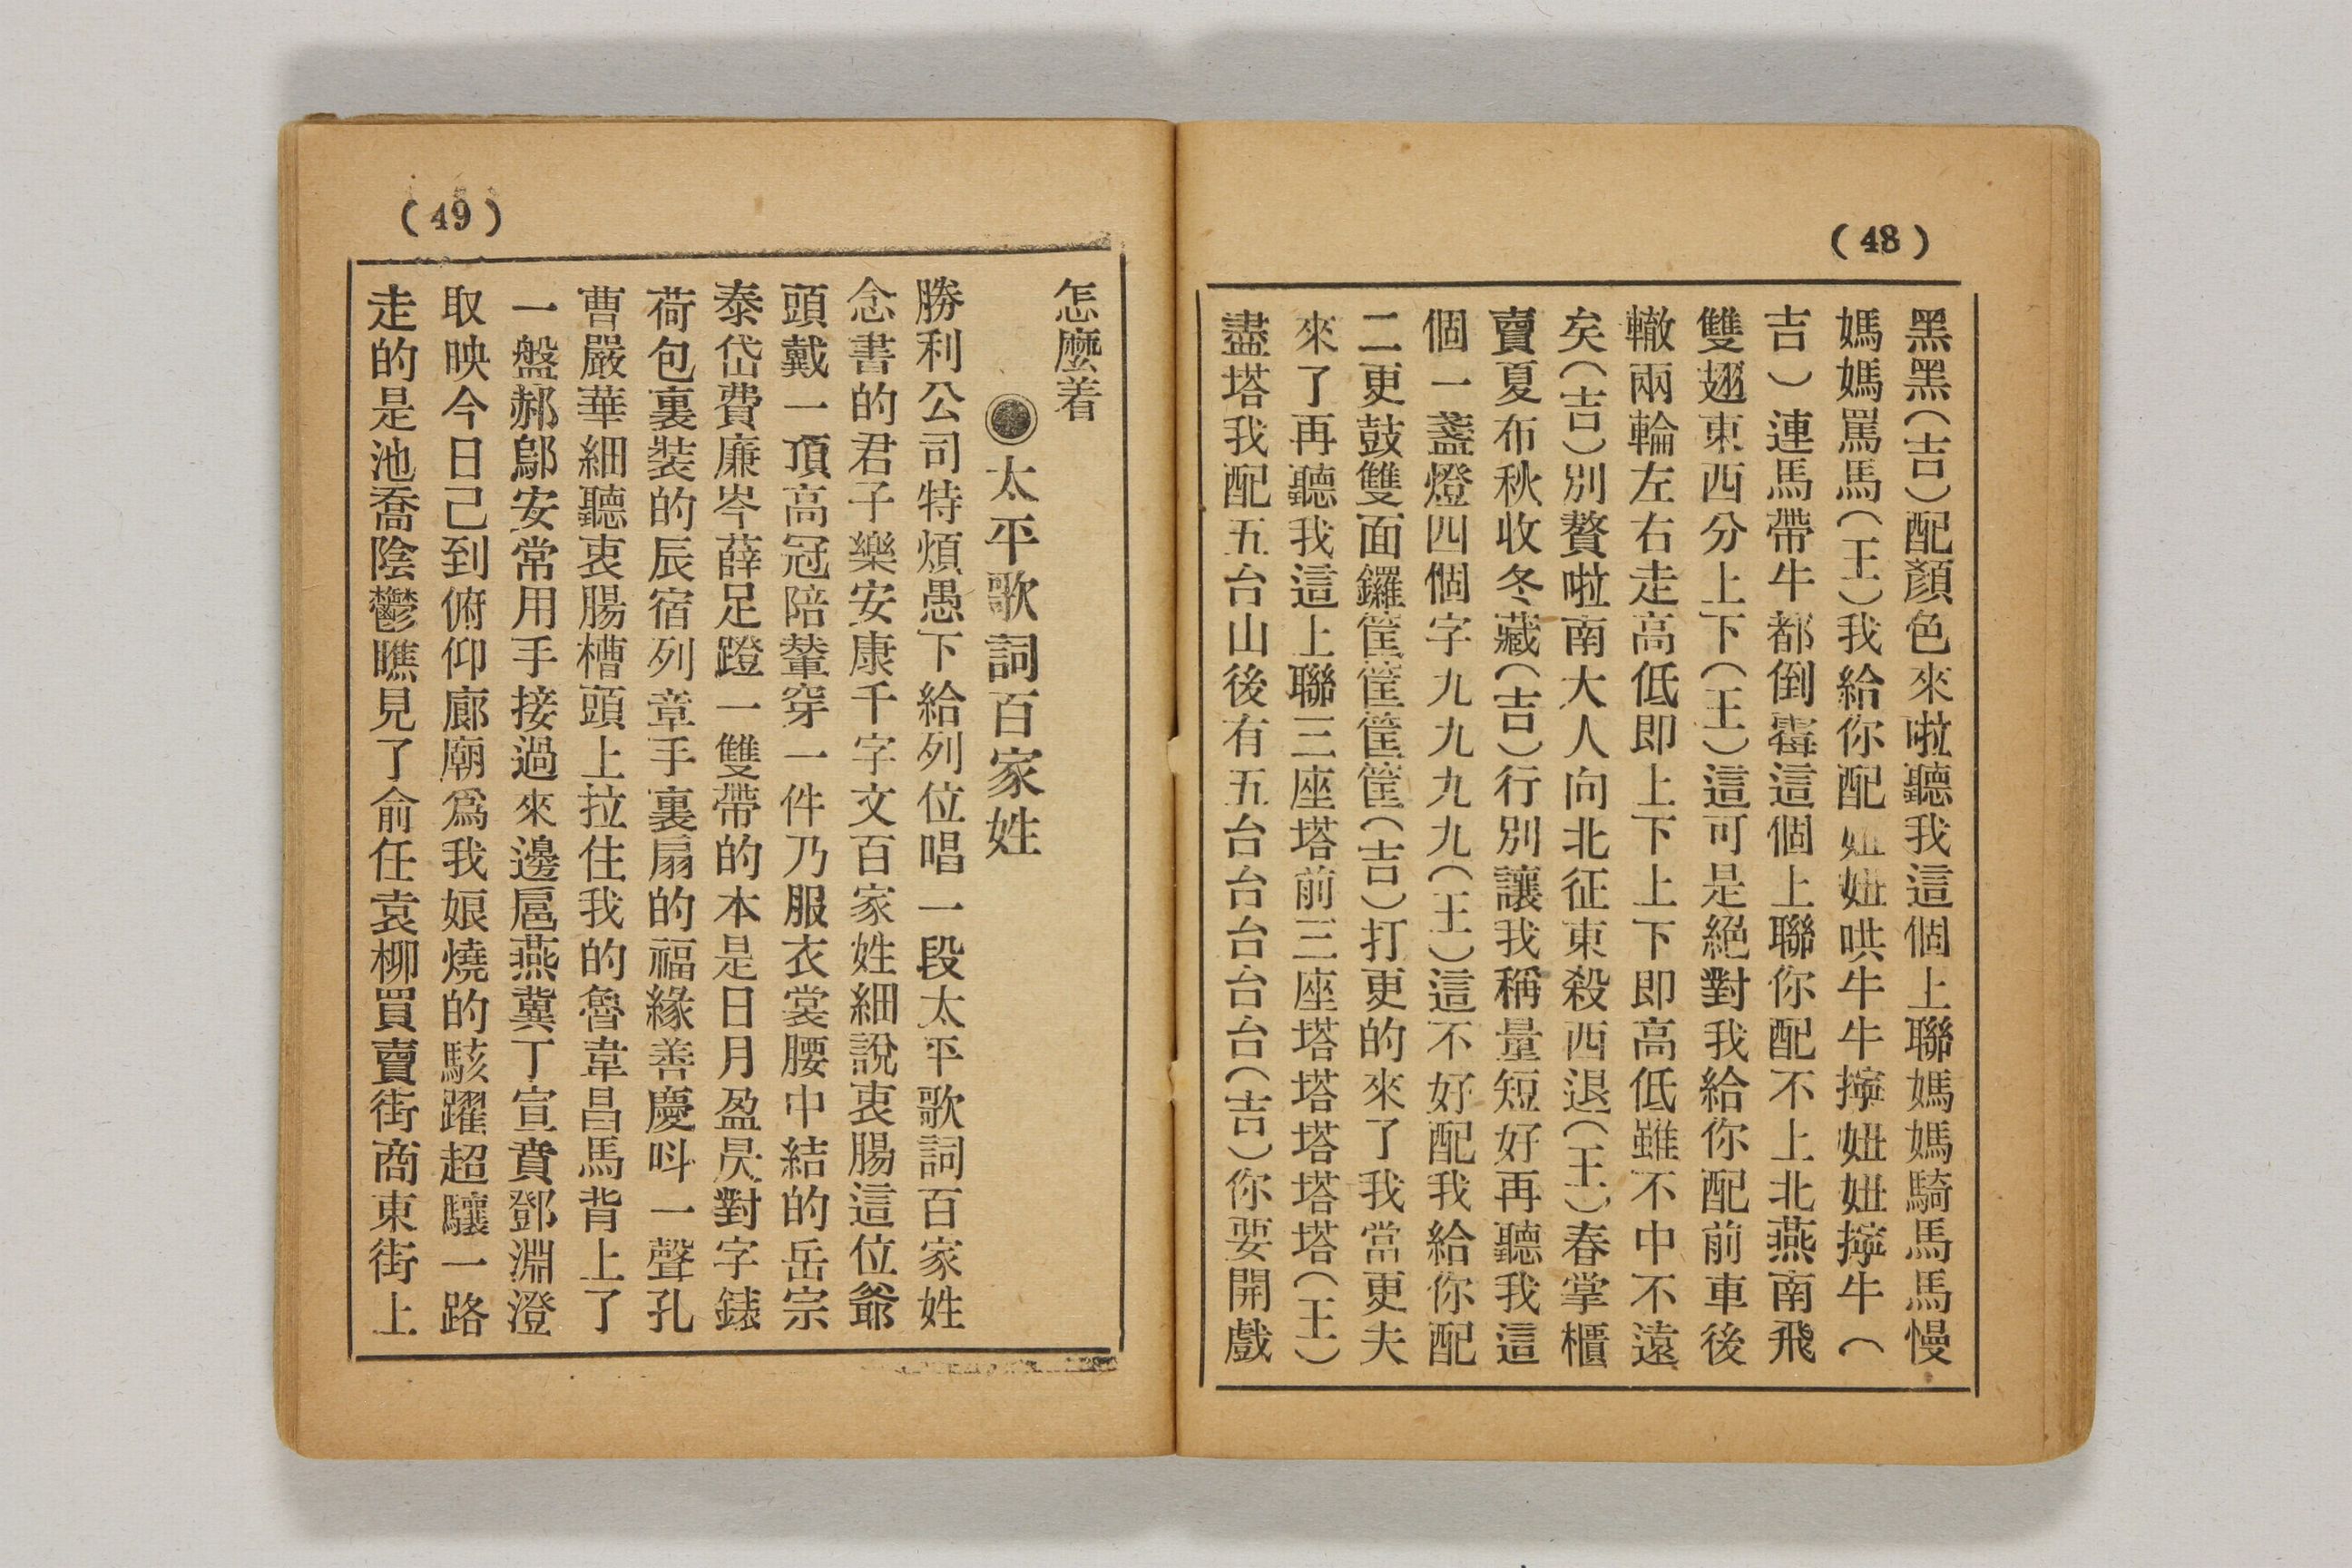 (48)
黑黑(吉)配顏色來啦聽我這個上聯媽媽騎馬馬慢
媽媽罵馬(王)我給你配妞妞哄牛牛擰妞妞擰牛(
吉)連馬帶牛都倒霉這個上聯你配不上北燕南飛
雙翅東西分上下(王)這可是絕對我給你配前車後
轍兩輪左右走高低即上下上下即高低雖不中不遠
矣(吉)別贅啦南大人向北征東殺西退(王)春掌櫃
賣夏布秋收冬藏(吉)行別讓我稱量短好再聽我這
個一盞燈四個字九九九九(王)這不好配我給你配
二更鼓雙面鑼筐筐筐筐(吉)打更的來了我當更夫
來了再聽我這上聯三座塔前三座塔塔塔塔塔(王)
盡塔我配五台山後有五台台台台台(吉)你要開戲
(49)
怎麼着
太平歌詞百家姓
勝利公司特煩愚下給列位唱一段太平歌詞百家姓
念書的君子樂安康千字文百家姓細說衷腸這位爺
頭戴一頂高冠陪輦穿一件乃服衣裳腰中結的岳宗
泰岱費廉岑薛足蹬一雙帶的本是日月盈昃對字錶
荷包裏裝的辰宿列章手裏扇的福緣善慶呌一聲孔
曹嚴華細聽衷腸槽頭上拉住我的魯韋昌馬背上了
一盤郝鄔安常用手接過來邊扈燕冀丁宣賁鄧淵澄
取映今日己到俯仰廊廟爲我娘燒的駭躍超驤一路
走的是池喬陰鬱瞧見了俞任袁柳買賣街商東街上